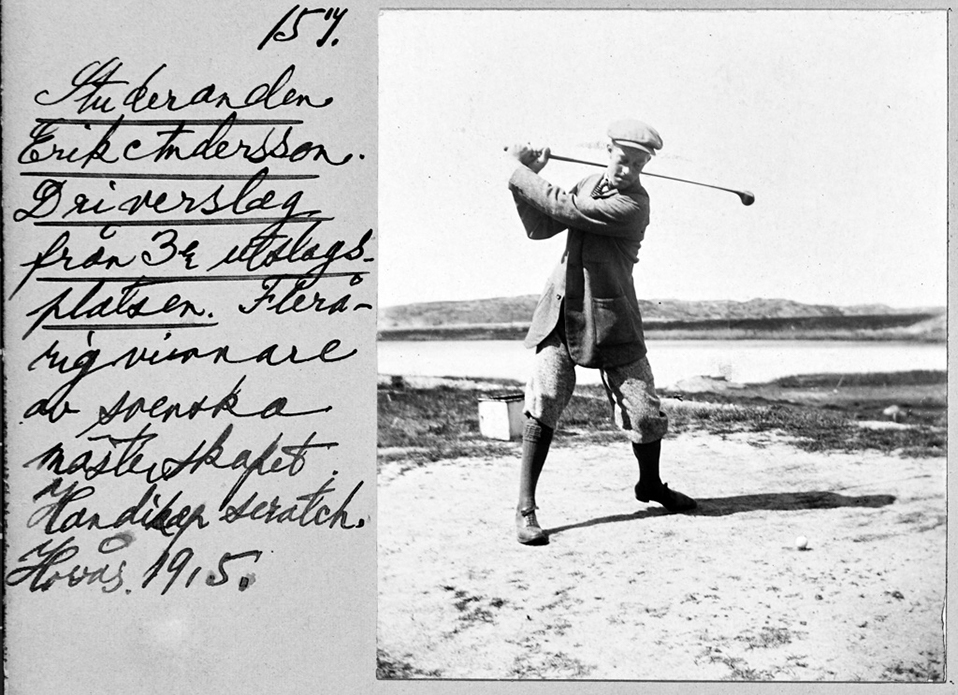 157.
Studeranden
Erik Andersson.
Driverslag
från 3e utslags-
platsen. Flerå-
rig vinnare
av svenska
mästerskapet.
Handikap scratch.
Hovås. 1915.